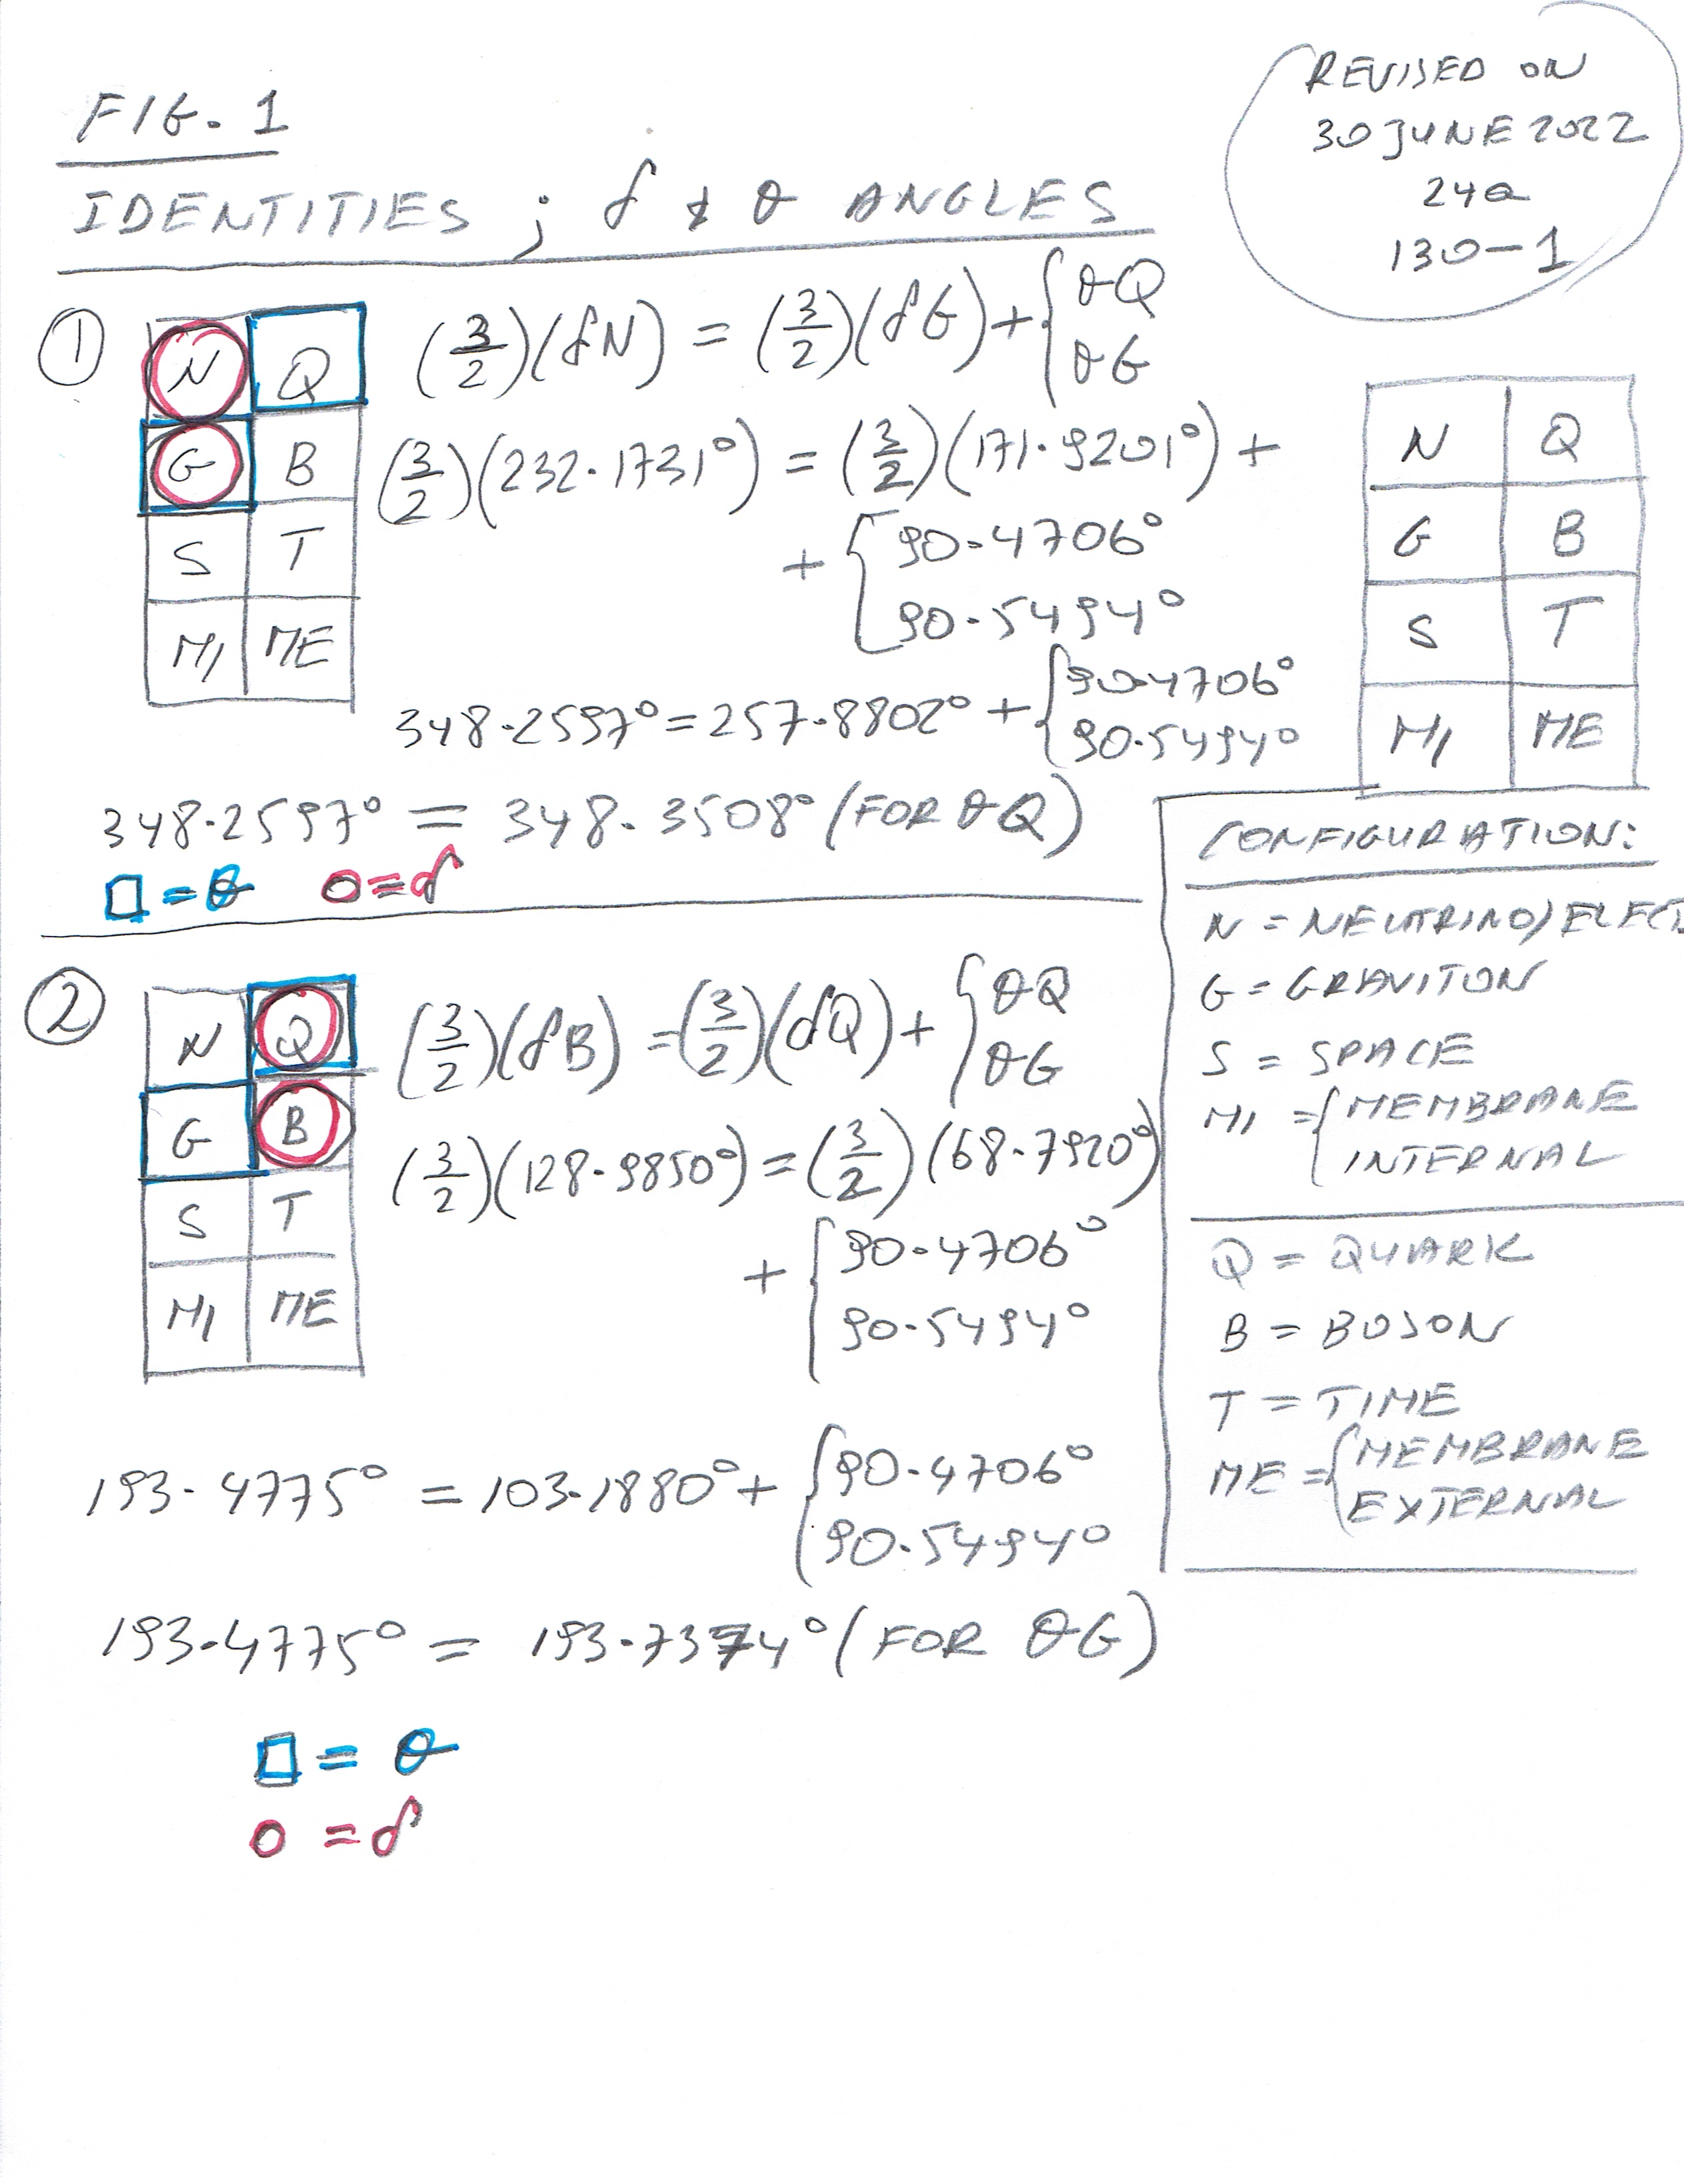 REVISED ON
30 JUNE 2022
24a
130-1
FIG. 1
IDENTITIES ; δ & θ ANGLES
①
N Q
G B
S T
MI ME
(3/2)(δN) = (3/2)(δG) + { θQ
θG
(3/2)(232.1731°) = (3/2)(171.9201°) +
+ { 90.4706°
90.5494°
348.2597° = 257.8802° + { 90.4706°
90.5494°
348.2597° = 348.3508° (FOR θQ)
□ = θ ○ = δ
N Q
G B
S T
MI ME
CONFIGURATION:
N = NEUTRINO/ELECT
G = GRAVITON
S = SPACE
MI = { MEMBRANE
INTERNAL
Q = QUARK
B = BOSON
T = TIME
ME = { MEMBRANE
EXTERNAL
②
N Q
G B
S T
MI ME
(3/2)(δB) = (3/2)(δQ) + { θQ
θG
(3/2)(128.9850°) = (3/2)(68.7920°)
+ { 90.4706°
90.5494°
193.4775° = 103.1880° + { 90.4706°
90.5494°
193.4775° = 193.7374° (FOR θG)
□ = θ
○ = δ